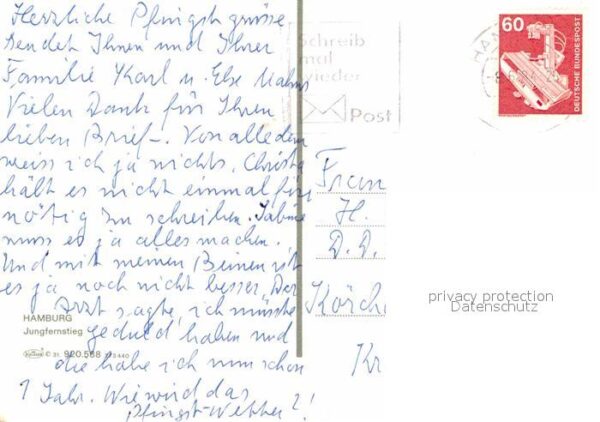 Herzliche Pfingstgrüsse
sendet Ihnen und Ihrer
Familie Karl u. Else
Vielen Dank für Ihren
lieben Brief. Von alledem
weiss ich ja nichts, Christa
hält es nicht einmal für
nötig zu schreiben. Sabine
muss es ja alles machen.
Und mit meinen Beinen ist
es ja noch nicht besser, Der
Arzt sagte, ich müsste
geduld haben und
die habe ich nun schon
1 Jahr. Wie wird das
Pfingst-Wetter?!
HAMBURG
Jungfernstieg
© 31. 920.588
Schreib
mal
wieder
Post
60
DEUTSCHE BUNDESPOST
HAM
Fran
H.
D. D.
Kirch
Kr
privacy protection
Datenschutz